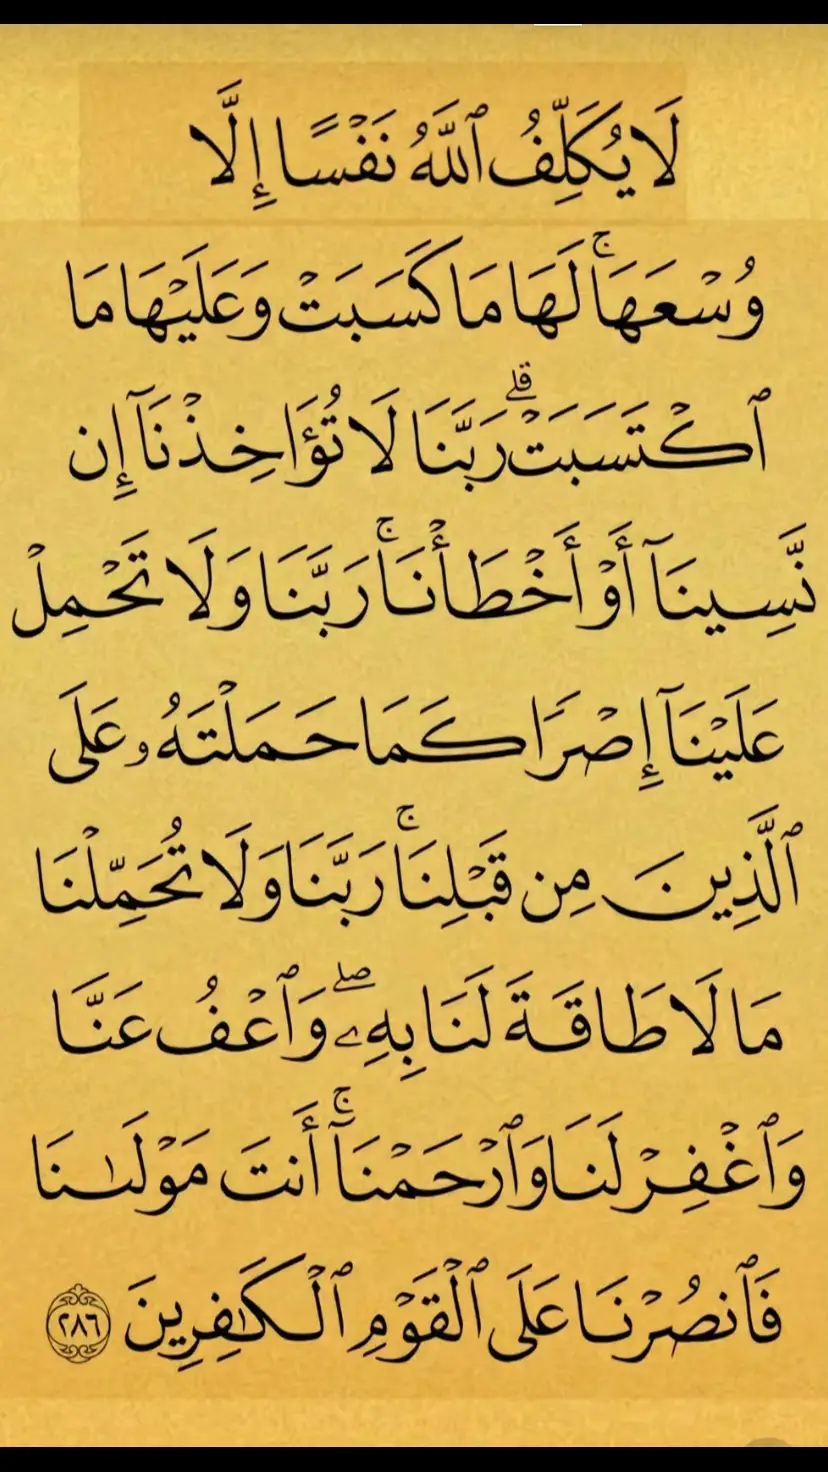 لَا يُكَلِّفُ ٱللَّهُ نَفْسًا إِلَّا
وُسْعَهَاۚ لَهَا مَا كَسَبَتْ وَعَلَيْهَا مَا
ٱكْتَسَبَتْۗ رَبَّنَا لَا تُؤَاخِذْنَآ إِن
نَّسِينَآ أَوْ أَخْطَأْنَاۚ رَبَّنَا وَلَا تَحْمِلْ
عَلَيْنَآ إِصْرًا كَمَا حَمَلْتَهُۥ عَلَى
ٱلَّذِينَ مِن قَبْلِنَاۚ رَبَّنَا وَلَا تُحَمِّلْنَا
مَا لَا طَاقَةَ لَنَا بِهِۦۖ وَٱعْفُ عَنَّا
وَٱغْفِرْ لَنَا وَٱرْحَمْنَآۚ أَنتَ مَوْلَىٰنَا
فَٱنصُرْنَا عَلَى ٱلْقَوْمِ ٱلْكَٰفِرِينَ ٢٨٦